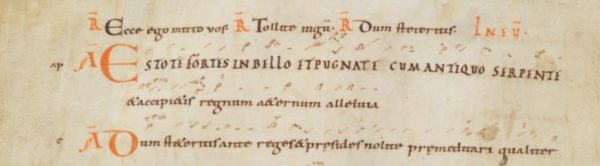 R Ecce ego mitto vos R Tollite iugũ· R Dum steteritis· IN EṼ·
ap A ESTOTE FORTES IN BELLO ET PUGNATE CUM ANTIQUO SERPENTE
&accipi&is regnum a&ernum alleluia
e A Dum st&eritis ante reges & presides nolite premeditari qualiter